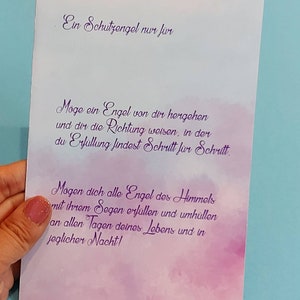 Ein Schutzengel nur für
Möge ein Engel vor dir hergehen
und dir die Richtung weisen, in der
du Erfüllung findest Schritt für Schritt.
Mögen dich alle Engel des Himmels
mit ihrem Segen erfüllen und umhüllen
an allen Tagen deines Lebens und in
jeglicher Nacht!